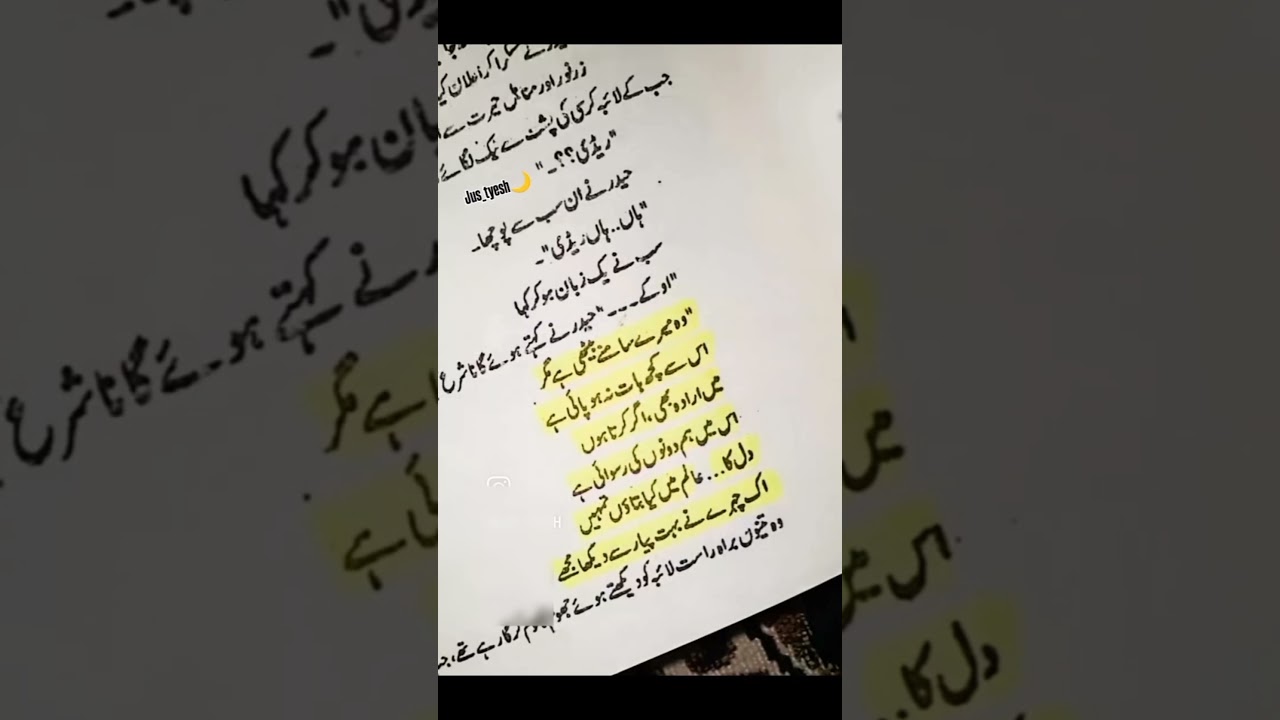 نے مسکرا کر اعلان کیا
زرنور اور مناہل حیرت سے
جب کے لائبہ کرسی کی پشت سے ٹیک لگائے
"ریڈی؟؟"۔
Jus_tyesh🌙
حیدر نے ان سب سے پوچھا۔
"ہاں..ہاں ریڈی"۔
سب نے یک زبان ہو کر کہا
"اوکے۔۔۔" حیدر نے کہتے ہوئے گانا شرع
"وہ میرے سامنے بیٹھی ہے مگر
اس سے کچھ بات نہ ہو پائی ہے
میں ارادہ بھی ،اگر کرتا ہوں
اس میں ہم دونوں کی رسوائی ہے
دل کا... عالم میں کیا بتاؤں تمہیں
اک چہرے نے بہت پیار سے دیکھا مجھے
وہ تینوں براہ راست لائبہ کو دیکھتے ہوئے جھوم کر گا رہے تھے،